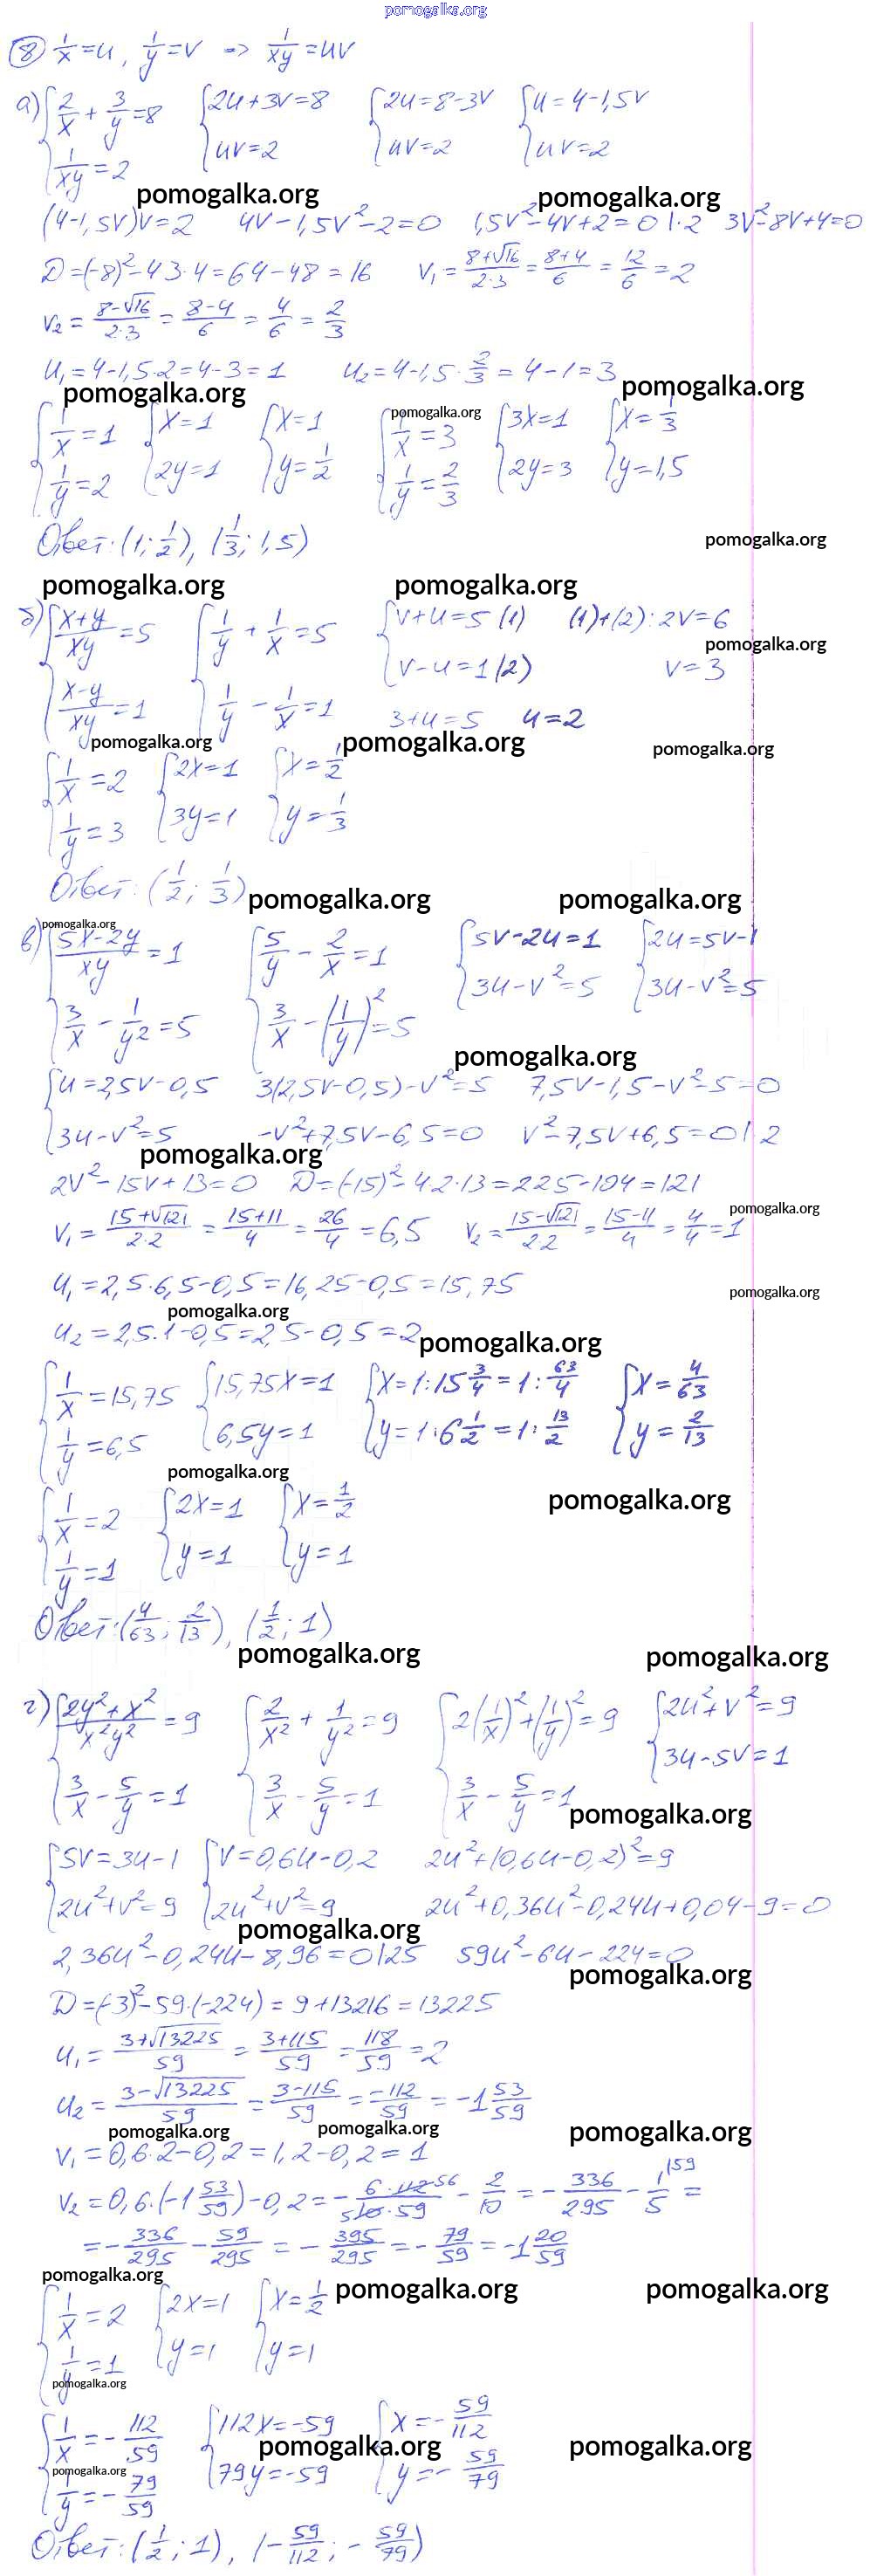 pomogalka.org
⑧ 1/x=u, 1/y=v => 1/xy=uv
а) {2/x + 3/y=8 {2u+3v=8 {2u=8-3v {u=4-1,5v
{1/xy=2 {uv=2 {uv=2 {uv=2
pomogalka.org pomogalka.org
(4-1,5v)v=2 4v-1,5v²-2=0 1,5v²-4v+2=0 |·2 3v²-8v+4=0
D=(-8)²-4·3·4=64-48=16 v₁=(8+√16)/(2·3)=(8+4)/6=12/6=2
v₂=(8-√16)/(2·3)=(8-4)/6=4/6=2/3
u₁=4-1,5·2=4-3=1 u₂=4-1,5·2/3=4-1=3
pomogalka.org pomogalka.org
{1/x=1 {x=1 {x=1 pomogalka.org {1/x=3 {3x=1 {x=1/3
{1/y=2 {2y=1 {y=1/2 {1/y=2/3 {2y=3 {y=1,5
Ответ: (1; 1/2), (1/3; 1,5) pomogalka.org
pomogalka.org pomogalka.org
б) {(x+y)/xy=5 {1/y + 1/x=5 {v+u=5 (1) (1)+(2): 2v=6
pomogalka.org
{(x-y)/xy=1 {1/y - 1/x=1 {v-u=1 (2) v=3
3+u=5 u=2
pomogalka.org pomogalka.org pomogalka.org
{1/x=2 {2x=1 {x=1/2
{1/y=3 {3y=1 {y=1/3
Ответ: (1/2; 1/3) pomogalka.org pomogalka.org
pomogalka.org
в) {(5x-2y)/xy=1 {5/y - 2/x=1 {5v-2u=1 {2u=5v-1
{3/x - 1/y²=5 {3/x - (1/y)²=5 {3u-v²=5 {3u-v²=5
pomogalka.org
{u=2,5v-0,5 3(2,5v-0,5)-v²=5 7,5v-1,5-v²-5=0
{3u-v²=5 -v²+7,5v-6,5=0 v²-7,5v+6,5=0 |·2
pomogalka.org
2v²-15v+13=0 D=(-15)²-4·2·13=225-104=121
v₁=(15+√121)/(2·2)=(15+11)/4=26/4=6,5 v₂=(15-√121)/(2·2)=(15-11)/4=4/4=1 pomogalka.org
u₁=2,5·6,5-0,5=16,25-0,5=15,75 pomogalka.org
pomogalka.org
u₂=2,5·1-0,5=2,5-0,5=2 pomogalka.org
{1/x=15,75 {15,75x=1 {x=1:15 3/4=1:63/4 {x=4/63
{1/y=6,5 {6,5y=1 {y=1:6 1/2=1:13/2 {y=2/13
pomogalka.org
{1/x=2 {2x=1 {x=1/2 pomogalka.org
{1/y=1 {y=1 {y=1
Ответ: (4/63; 2/13), (1/2; 1)
pomogalka.org pomogalka.org
г) {(2y²+x²)/x²y²=9 {2/x² + 1/y²=9 {2(1/x)²+(1/y)²=9 {2u²+v²=9
{3/x - 5/y=1 {3/x - 5/y=1 {3/x - 5/y=1 {3u-5v=1
pomogalka.org
{5v=3u-1 {v=0,6u-0,2 2u²+(0,6u-0,2)²=9
{2u²+v²=9 {2u²+v²=9 2u²+0,36u²-0,24u+0,04-9=0
pomogalka.org
2,36u²-0,24u-8,96=0 |·25 59u²-6u-224=0
pomogalka.org
D=(-3)²-59·(-224)=9+13216=13225
u₁=(3+√13225)/59=(3+115)/59=118/59=2
u₂=(3-√13225)/59=(3-115)/59=-112/59=-1 53/59
pomogalka.org pomogalka.org pomogalka.org
v₁=0,6·2-0,2=1,2-0,2=1
v₂=0,6·(-1 53/59)-0,2=-(6·112 56)/(5 10·59) - 2/10=-336/295 - 1/5 |59=
=-336/295 - 59/295=-395/295=-79/59=-1 20/59
pomogalka.org pomogalka.org pomogalka.org
{1/x=2 {2x=1 {x=1/2
{1/y=1 {y=1 {y=1
pomogalka.org
{1/x=-112/59 {112x=-59 {x=-59/112
pomogalka.org pomogalka.org
pomogalka.org
{1/y=-79/59 {79y=-59 {y=-59/79
Ответ: (1/2; 1), (-59/112; -59/79)